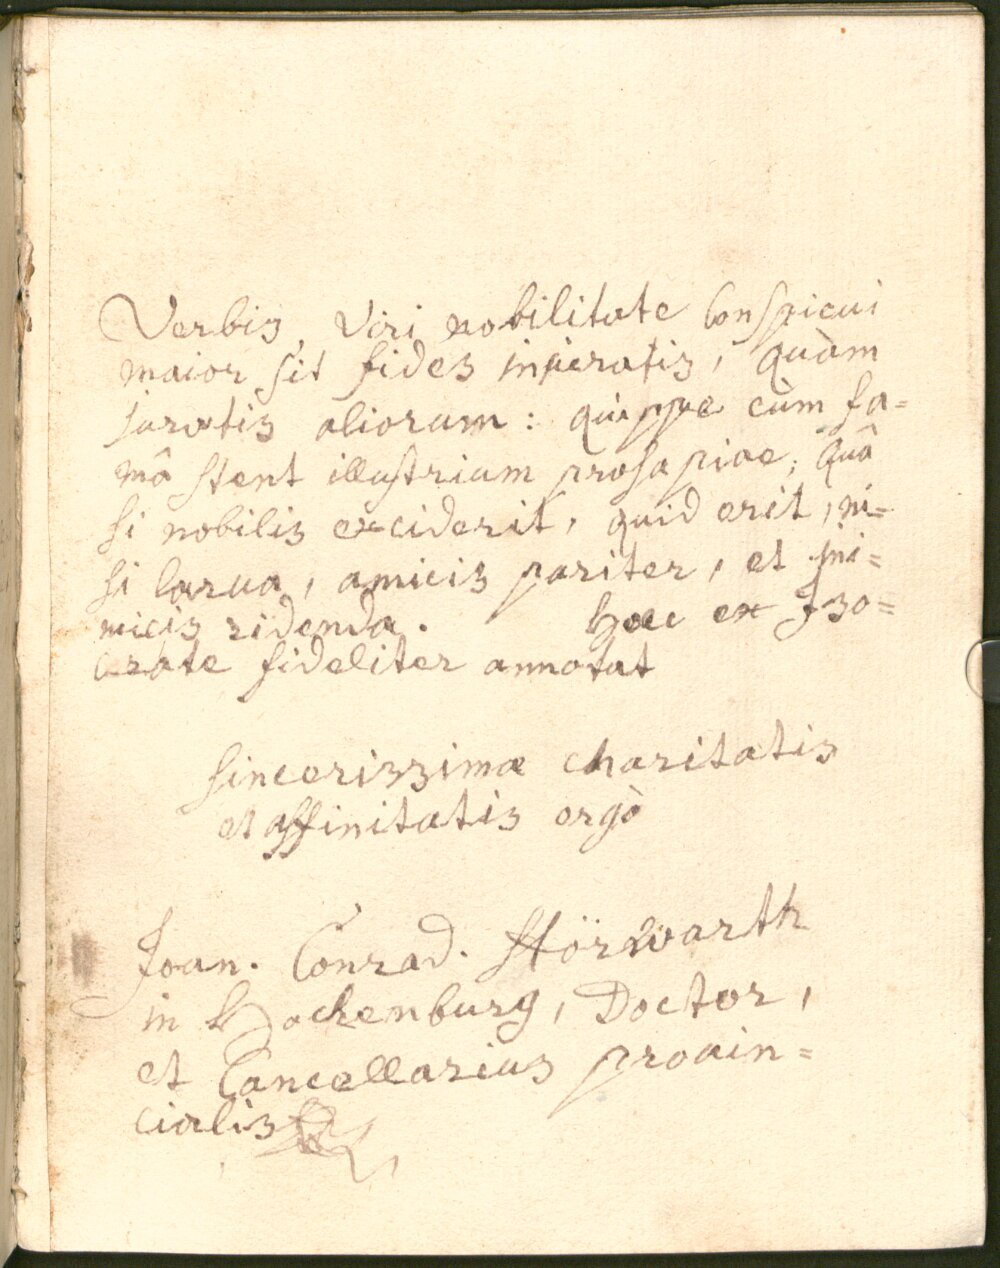 Verbis Viri nobilitate Conspicui
maior sit fides iniuratis, quàm
iuratis aliorum: quippe cùm fa=
mâ stent illustrium prosapiae; quâ
si nobilis exciderit, quid erit, ni=
si larua, amicis pariter, et ini=
micis ridenda. Haec ex Iso=
crate fideliter annotat
sincerissimæ charitatis
et affinitatis ergò
Joan. Conrad. Hörwarth
in Hochenburg, Doctor,
et Cancellarius prouin=
cialis